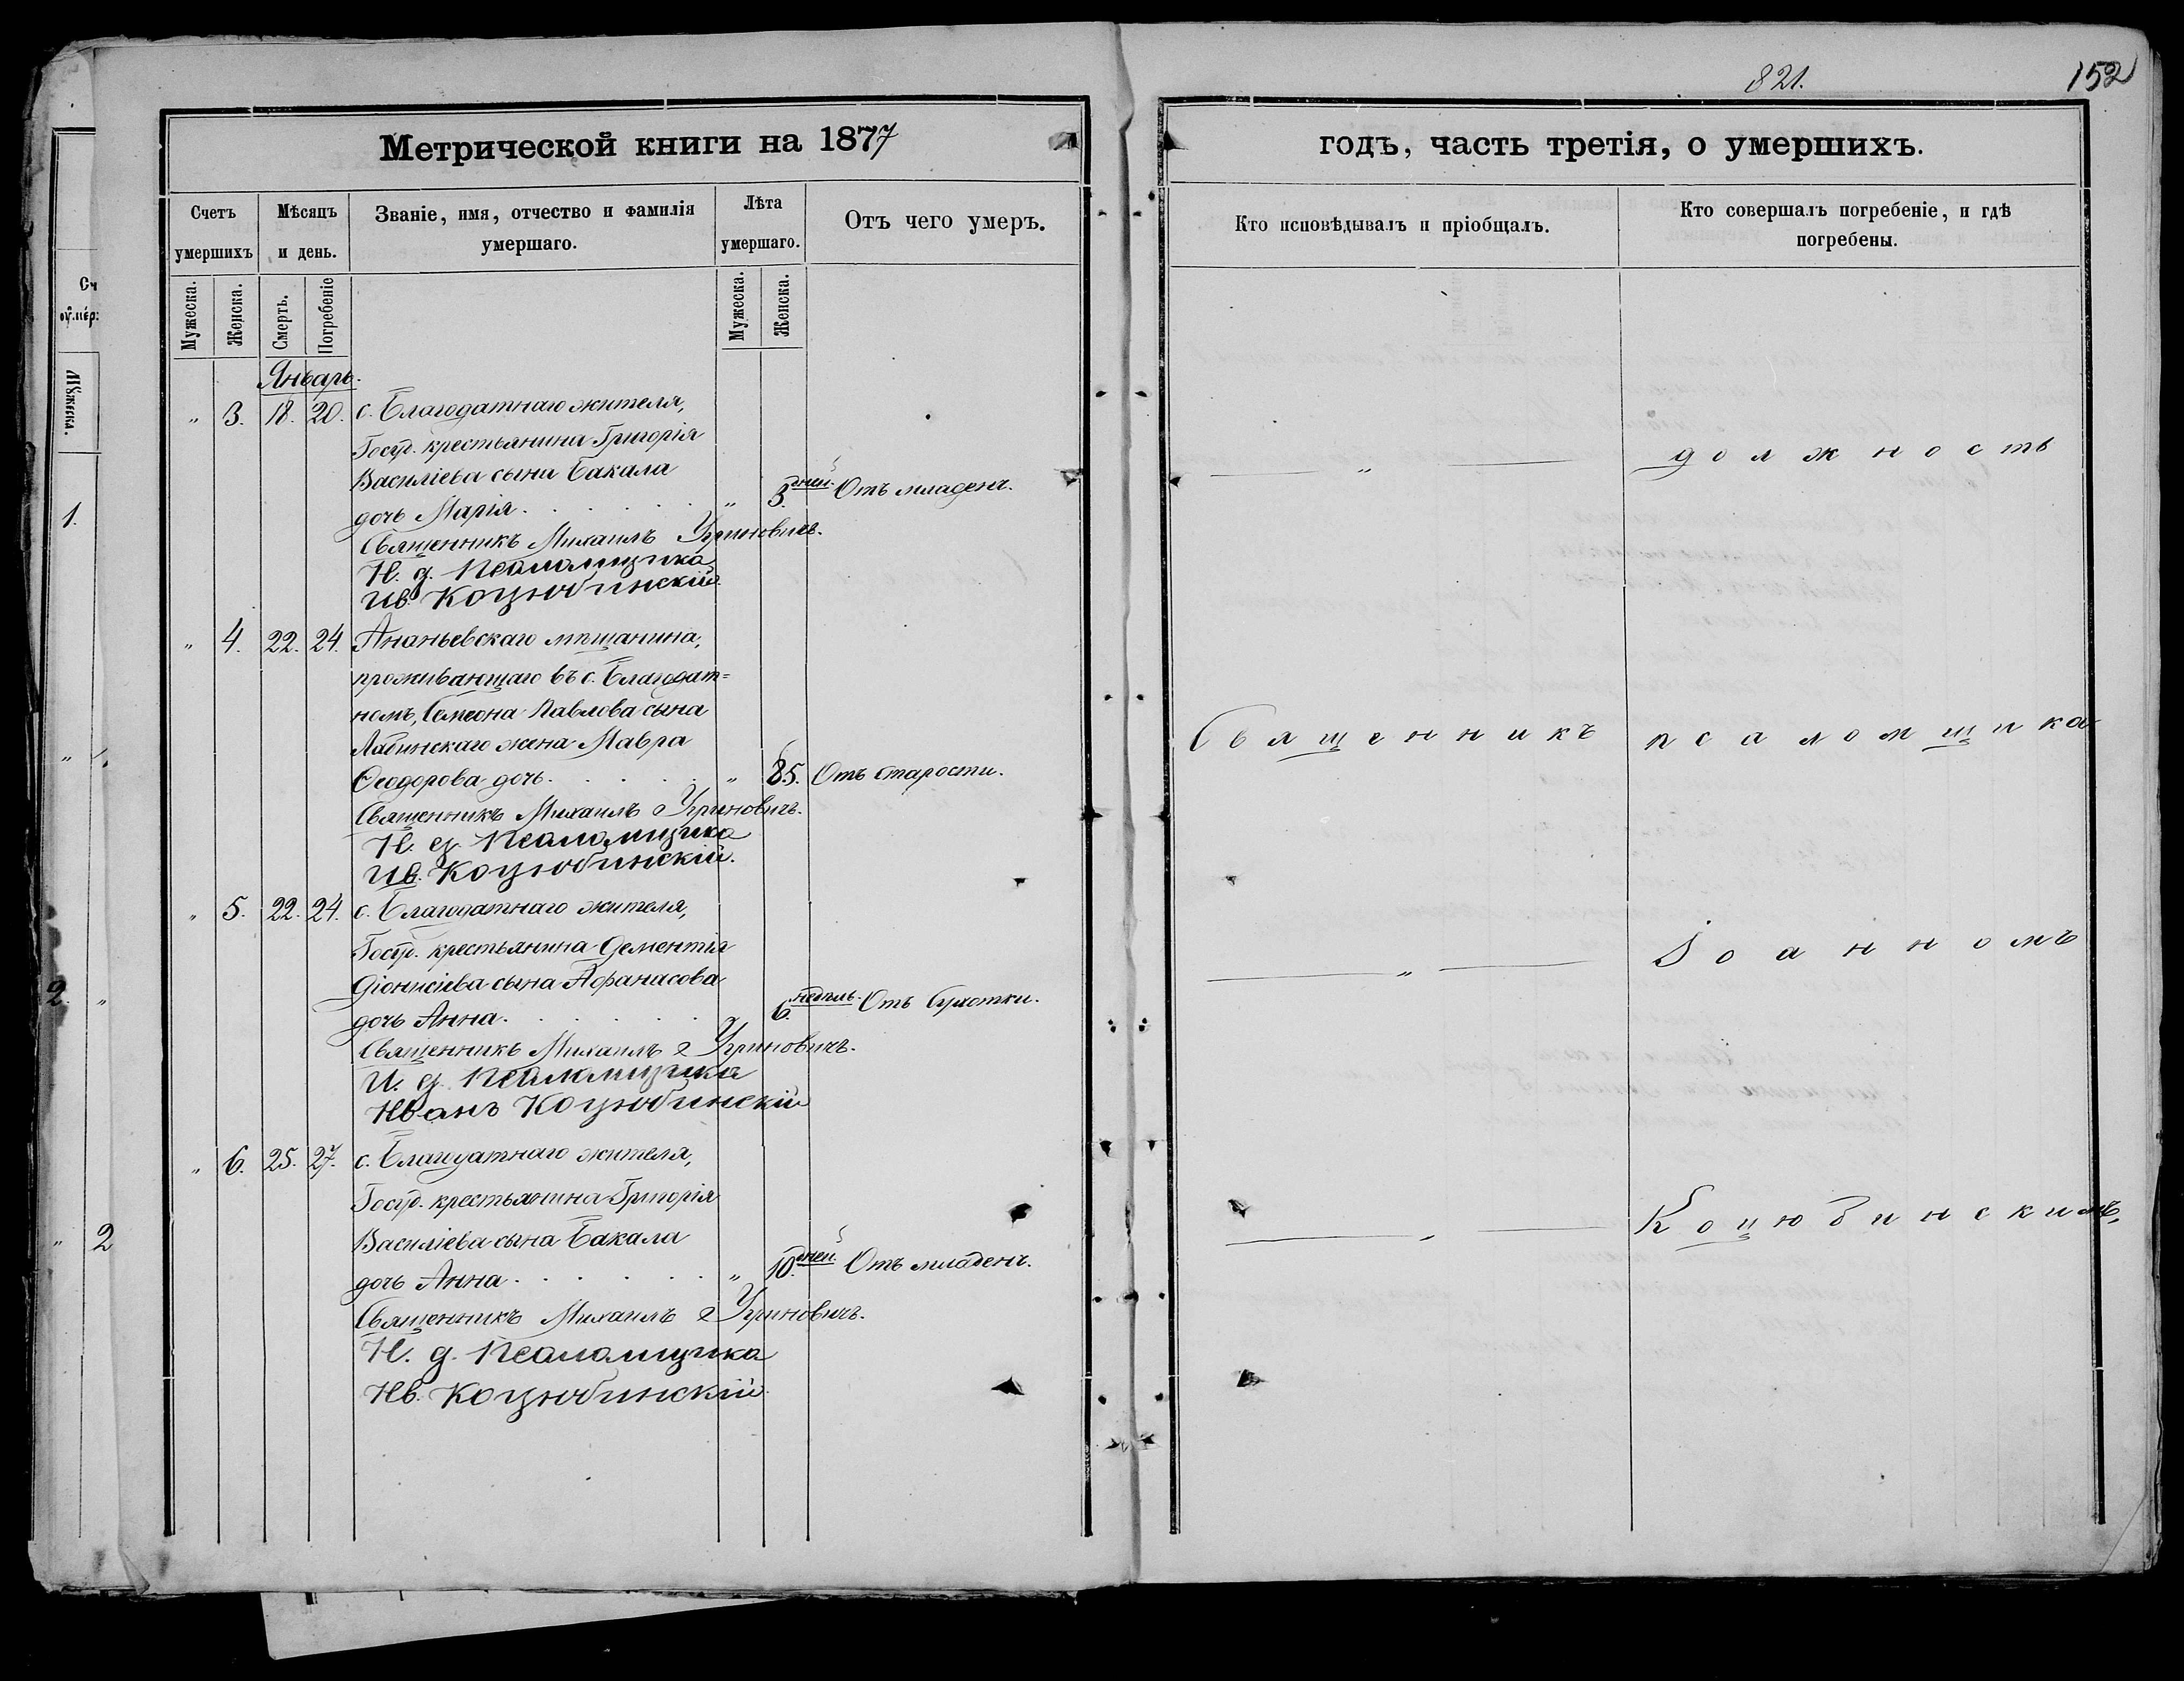 821.
152
Метрической книги на 1877
годъ, часть третія, о умершихъ.
Счетъ умершихъ
Мѣсяцъ и день.
Званіе, имя, отчество и фамилія умершаго.
Лѣта умершаго.
Отъ чего умеръ.
Кто исповѣдывалъ и пріобщалъ.
Кто совершалъ погребеніе, и гдѣ погребены.
Мужеска.
Женска.
Смерть.
Погребеніе
Мужеска.
Женска.
Январь.
" 3. 18. 20. с. Благодатнаго жителя,
Госуд. крестьянина Григорія
Василіева сына Бакала
дочь Марія. " 3. дней. Отъ младенч.
Священникъ Михаилъ Угриновичъ.
И. д. Псаломщика
Ив. Коцюбинскій
" 4. 22. 24. Ананьевскаго мѣщанина,
проживающаго въ с. Благодат=
номъ, Симеона Павлова сына
Лабинскаго жена Мавра
Ѳеодорова дочь. " 85. Отъ старости.
Священникъ Михаилъ Угриновичъ.
И. д. Псаломщика
Ив. Коцюбинскій.
" 5. 22. 24. с. Благодатнаго жителя,
Госуд. крестьянина Дементія
Діонисіева сына Афанасова
дочь Анна. 6. недѣль. Отъ сухотки.
Священникъ Михаилъ Угриновичъ.
И. д. Псаломщика
Иванъ Коцюбинскій
" 6. 25. 27. с. Благодатнаго жителя,
Госуд. крестьянина Григорія
Василіева сына Бакала
дочь Анна. " 10. дней. Отъ младенч.
Священникъ Михаилъ Угриновичъ.
И. д. Псаломщика
Ив. Коцюбинскій
" должность
Священникъ псаломщика
" Іоанномъ
" Коцюбинскимъ,
Сч
умер:
Мужеска.
1.
2. "
" 2